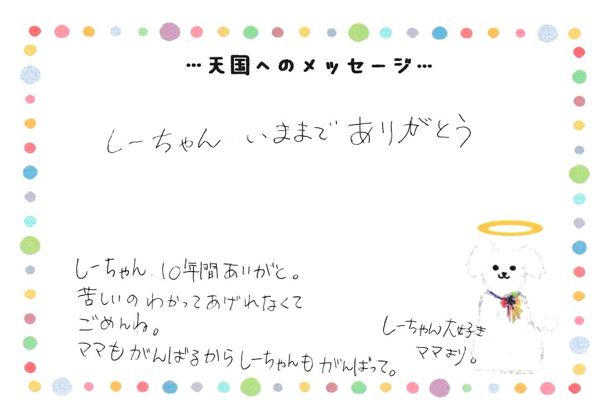 …天国へのメッセージ…
しーちゃん いままで ありがとう
しーちゃん、10年間ありがと。
苦しいのわかってあげれなくて
ごめんね。
ママもがんばるからしーちゃんもがんばって。
しーちゃん大好き
ママより。